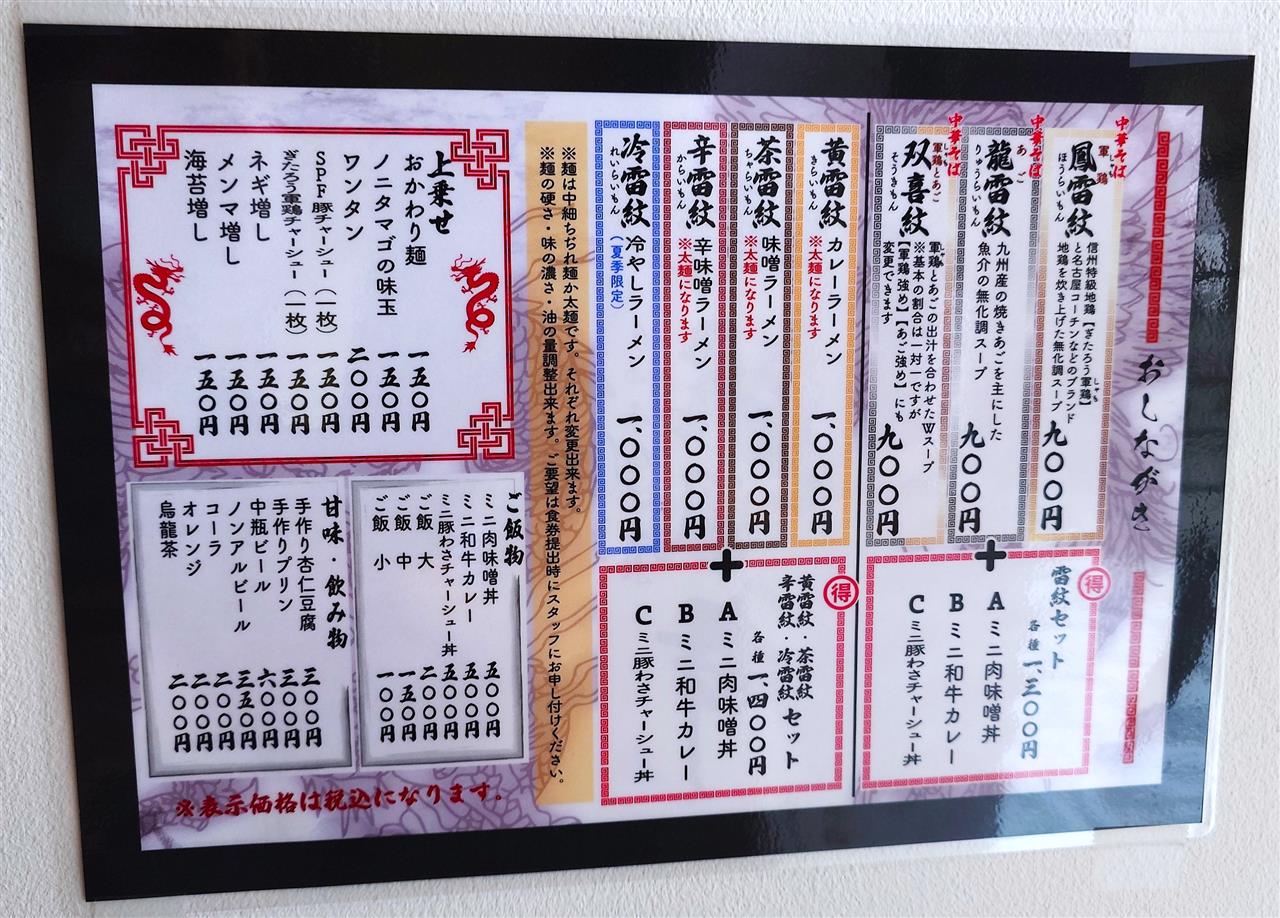 おしながき
中華そば
軍鶏
しゃも
鳳雷紋
ほうらいもん
信州特級地鶏【ぎたろう軍鶏】
しゃも
と名古屋コーチンなどのブランド
地鶏を炊き上げた無化調スープ
九〇〇円
中華そば
あご
龍雷紋
りゅうらいもん
九州産の焼きあごを主にした
魚介の無化調スープ
九〇〇円
中華そば
軍鶏とあご
しゃも
双喜紋
そうきもん
軍鶏とあごの出汁を合わせたWスープ
しゃも
※基本の割合は一対一ですが
【軍鶏強め】【あご強め】にも
変更できます
九〇〇円
得
雷紋セット
各種 一、三〇〇円
A ミニ肉味噌丼
B ミニ和牛カレー
C ミニ豚わさチャーシュー丼
黄雷紋
きらいもん
カレーラーメン
※太麺になります
一、〇〇〇円
茶雷紋
ちゃらいもん
味噌ラーメン
※太麺になります
一、〇〇〇円
辛雷紋
からいもん
辛味噌ラーメン
※太麺になります
一、〇〇〇円
冷雷紋
れいらいもん
冷やしラーメン
(夏季限定)
一、〇〇〇円
得
黄雷紋・茶雷紋
辛雷紋・冷雷紋 セット
各種 一、四〇〇円
A ミニ肉味噌丼
B ミニ和牛カレー
C ミニ豚わさチャーシュー丼
※麺は中細ちぢれ麺か太麺です。それぞれ変更出来ます。
※麺の硬さ・味の濃さ・油の量調整出来ます。ご要望は食券提出時にスタッフにお申し付けください。
上乗せ
おかわり麺 一五〇円
ノニタマゴの味玉 一五〇円
ワンタン 二〇〇円
SPF豚チャーシュー(一枚) 一五〇円
ぎたろう軍鶏チャーシュー(一枚) 一五〇円
ネギ増し 一五〇円
メンマ増し 一五〇円
海苔増し 一五〇円
ご飯物
ミニ肉味噌丼 五〇〇円
ミニ和牛カレー 五〇〇円
ミニ豚わさチャーシュー丼 五〇〇円
ご飯 大 二〇〇円
ご飯 中 一五〇円
ご飯 小 一〇〇円
甘味・飲み物
手作り杏仁豆腐 三〇〇円
手作りプリン 三〇〇円
中瓶ビール 六〇〇円
ノンアルビール 三五〇円
コーラ 二〇〇円
オレンジ 二〇〇円
烏龍茶 二〇〇円
※表示価格は税込になります。